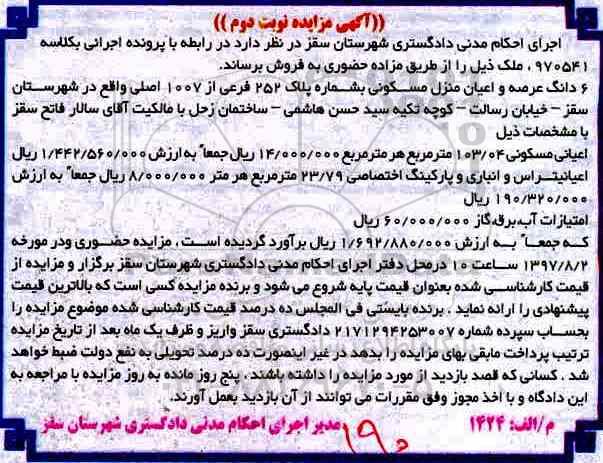 ((آگهی مزایده نوبت دوم))
اجرای احکام مدنی دادگستری شهرستان سقز در نظر دارد در رابطه با پرونده اجرائی بکلاسه
۹۷۰۵۴۱ ، ملک ذیل را از طریق مزاده حضوری به فروش برساند.
۶ دانگ عرصه و اعیان منزل مسکونی بشماره پلاک ۲۵۲ فرعی از ۱۰۰۷ اصلی واقع در شهرستان
سقز – خیابان رسالت – کوچه تکیه سید حسن هاشمی – ساختمان زحل با مالکیت آقای سالار فاتح سقز
با مشخصات ذیل
اعیانی مسکونی ۱۰۳/۰۴ مترمربع هر مترمربع ۱۴/۰۰۰/۰۰۰ ریال جمعاً به ارزش ۱/۴۴۲/۵۶۰/۰۰۰ ریال
اعیانیتراس و انباری و پارکینگ اختصاصی ۲۳/۷۹ مترمربع هر متر ۸/۰۰۰/۰۰۰ ریال جمعاً به ارزش
۱۹۰/۳۲۰/۰۰۰ ریال
امتیازات آب،برق،گاز ۶۰/۰۰۰/۰۰۰ ریال
که جمعاً به ارزش ۱/۶۹۲/۸۸۰/۰۰۰ ریال برآورد گردیده است ، مزایده حضوری ودر مورخه
۱۳۹۷/۸/۲ ساعت ۱۰ درمحل دفتر اجرای احکام مدنی دادگستری شهرستان سقز برگزار و مزایده از
قیمت کارشناسی شده بعنوان قیمت پایه شروع می شود و برنده مزایده کسی است که بالاترین قیمت
پیشنهادی را ارائه نماید . برنده بایستی فی المجلس ده درصد قیمت کارشناسی شده موضوع مزایده را
بحساب سپرده شماره ۲۱۷۱۲۹۴۲۵۳۰۰۷ دادگستری سقز واریز و ظرف یک ماه بعد از تاریخ مزایده
ترتیب پرداخت مابقی بهای مزایده را بدهد در غیر اینصورت ده درصد تحویلی به نفع دولت ضبط خواهد
شد . کسانی که قصد بازدید از مورد مزایده را داشته باشند ، پنج روز مانده به روز مزایده با مراجعه به
این دادگاه و با اخذ مجوز وفق مقررات می توانند از آن بازدید بعمل آورند.
م/الف: ۱۴۲۴ مدیر اجرای احکام مدنی دادگستری شهرستان سقز
۱۹۰